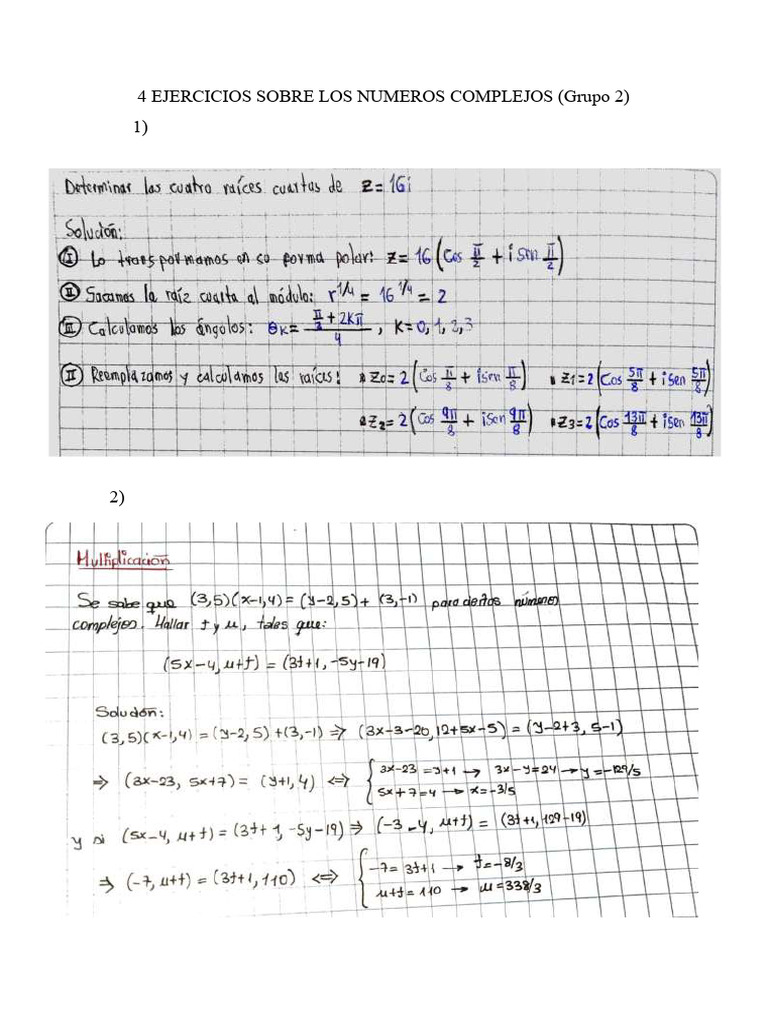 4 EJERCICIOS SOBRE LOS NUMEROS COMPLEJOS (Grupo 2)
1)
Determinar las cuatro raíces cuartas de z = 16i
Solución:
Ⓘ Lo transformamos en su forma polar: z = 16 (Cos π/2 + i Sen π/2)
Ⓘ Sacamos la raíz cuarta al módulo: r^1/4 = 16^1/4 = 2
Ⓘ Calculamos los ángulos: θk = (π/2 + 2Kπ)/4 , K = 0, 1, 2, 3
Ⓘ Reemplazamos y calculamos las raíces: • Z0 = 2 (Cos π/8 + i sen π/8) • Z1 = 2 (Cos 5π/8 + i Sen 5π/8)
• Z2 = 2 (Cos 9π/8 + i Sen 9π/8) • Z3 = 2 (Cos 13π/8 + i Sen 13π/8)
2)
Multiplicación
Se sabe que (3,5)(x-1,4) = (y-2,5) + (3,-1) para ciertos números
complejos. Hallar t y u, tales que:
(5x-4, u+t) = (3t+1, -5y-19)
Solución:
(3,5)(x-1,4) = (y-2,5) + (3,-1) ⇒ (3x-3-20, 12+5x-5) = (y-2+3, 5-1)
⇒ (3x-23, 5x+7) = (y+1, 4) ⟺ { 3x-23 = y+1 → 3x-y = 24 → y = -129/5
5x+7 = 4 → x = -3/5
y si (5x-4, u+t) = (3t+1, -5y-19) ⇒ (-3-4, u+t) = (3t+1, 129-19)
⇒ (-7, u+t) = (3t+1, 110) ⟺ { -7 = 3t+1 → t = -8/3
u+t = 110 → u = 338/3